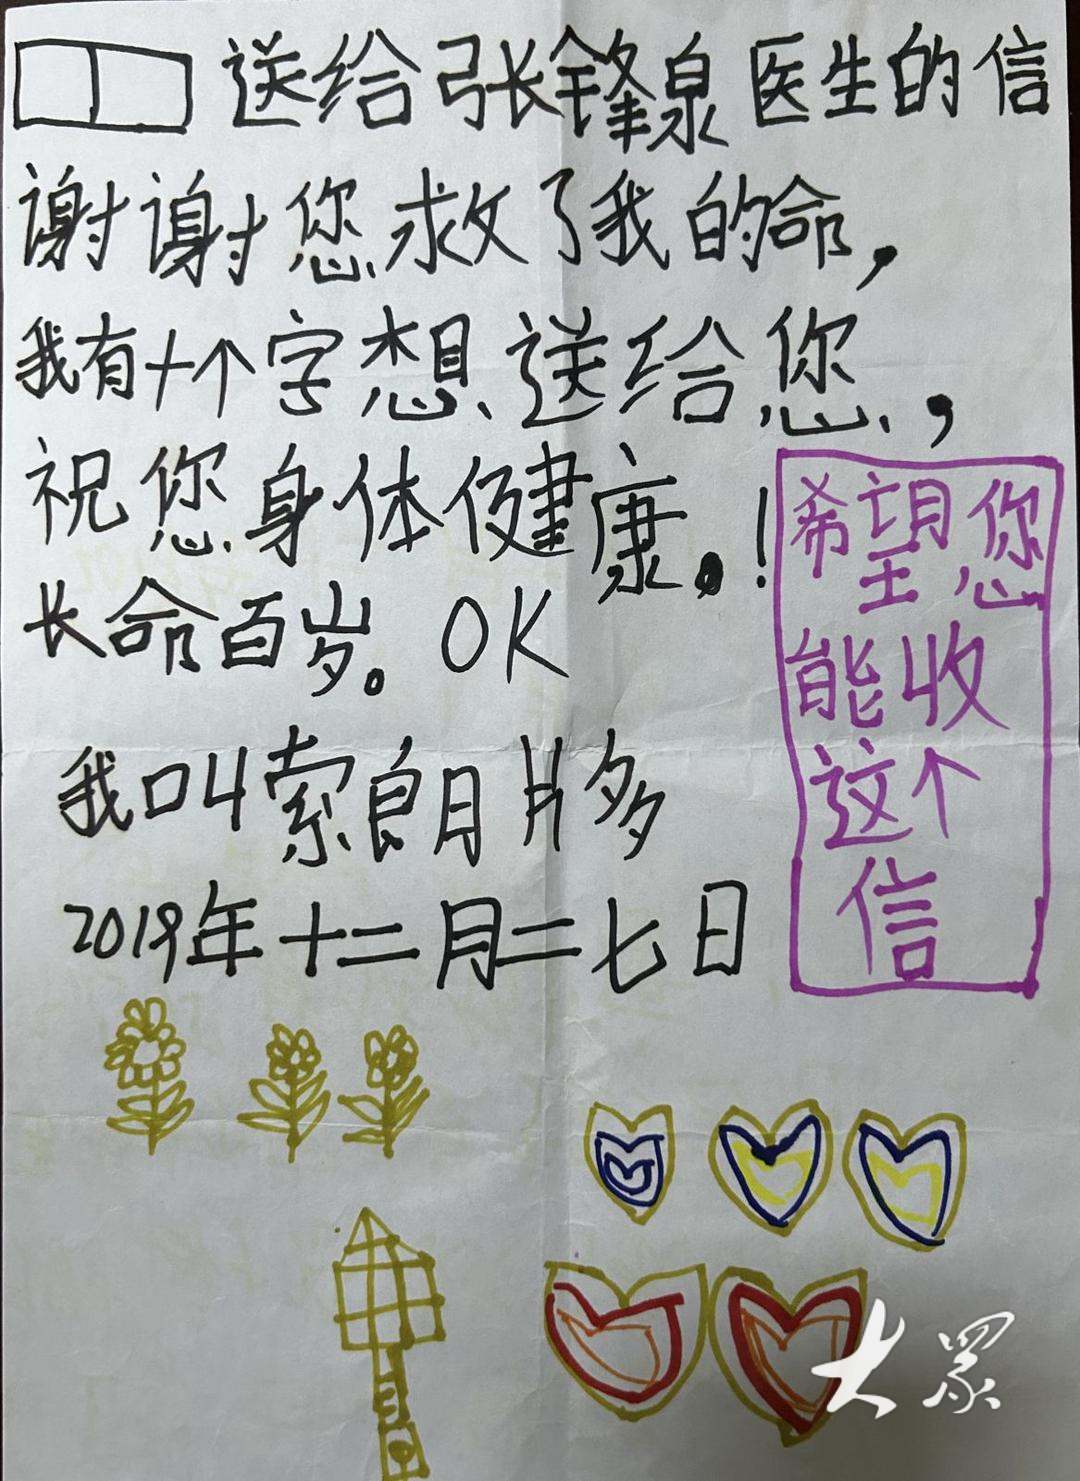 送给张锋泉医生的信
谢谢您救了我的命，
我有十个字想送给您，
祝您身体健康。！
长命百岁。OK
我叫索朗片多
2019年十二月二七日
希望您
能收
这个
信
大众